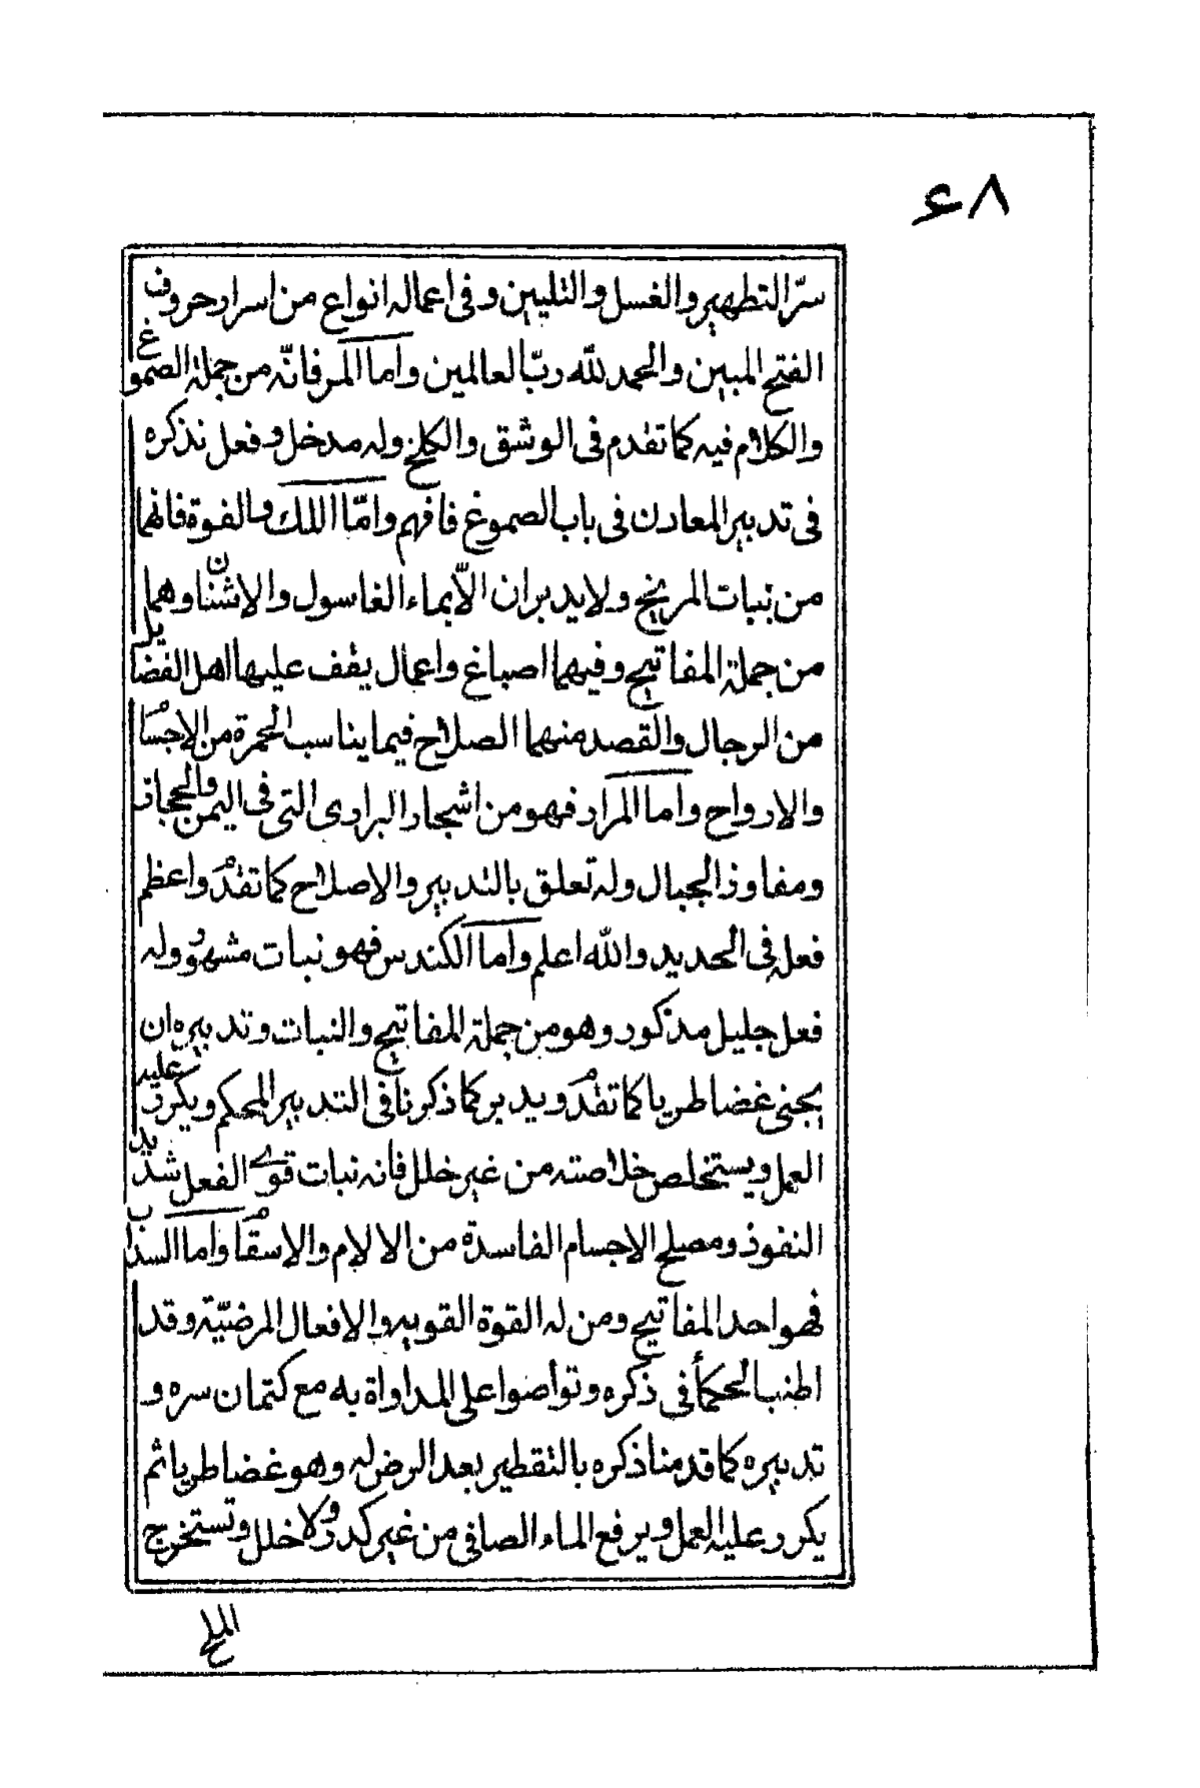 ٨ء
سرّ التطهير والغسل والتليين وفى اعماله انواع من اسرار حروف
الفتح المبين والحمد لله ربّ العالمين واما المر فانّه من جملة الصموغ
والكلام فيه كما تقدم فى الوشق والكلخ وله مدخل وفعل نذكره
فى تدبير المعادن فى باب الصموغ فافهم وامّا اللك والفوة فانهما
من نبات المريخ ولا يدبران الّا بماء الغاسول والاشنّان وهما
من جملة المفاتيح وفيهما اصباغ واعمال يقف عليها اهل الفضايل
من الرجال والقصد منهما الصلاح فيما يناسب الحمرة من الاجسام
والارواح واما المرار فهو من اشجار البرارى التى فى اليمن والحجاز
ومفاوز الجبال وله تعلق بالتدبير والاصلاح كما تقدم واعظم
فعله فى الحديد والله اعلم واما الكندس فهو نبات مشهور وله
فعل جليل مذكور وهو من جملة المفاتيح والنبات وتدبيره ان
يجنى غضا طريا كما تقدم ويدبر كما ذكرنا فى التدبير المحكم ويكرر عليه
العمل ويستخلص خلاصته من غير خلل فانه نبات قوى الفعل شديد
النفوذ ومصلح الاجسام الفاسدة من الالام والاسقام واما السذاب
فهو احد المفاتيح ومن له القوة القويه والافعال المرضيّة وقد
اطنب الحكمأ فى ذكره وتواصوا على المداواة به مع كتمان سره و
تدبيره كما قدمنا ذكره بالتقطير بعد الرض له وهو غضا طريا ثم
يكرر عليه العمل ويرفع الماء الصافى من غير كدر ولا خلل وتستخرج
الملح